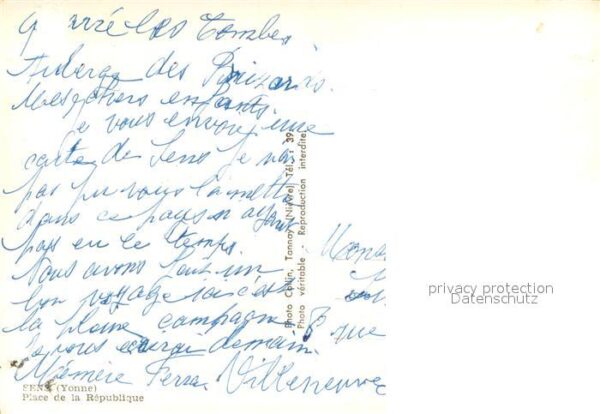 Quarré les Tombes
Auberge des Brizards.
Mes chers enfants.
je vous envoie une
carte de Sens je n'ai
pas pu vous la mettre
dans ce pays n ayant
pas eu le temps.
Nous avons fait un
bon voyage ici c'est
la pleine campagne
je vous écrirai demain.
Mémère
Mons
8 rue
Villeneuve
SENS (Yonne)
Place de la République
Photo Collin, Tannay (Nièvre) Tél. : 39
Photo véritable - Reproduction interdite
privacy protection
Datenschutz